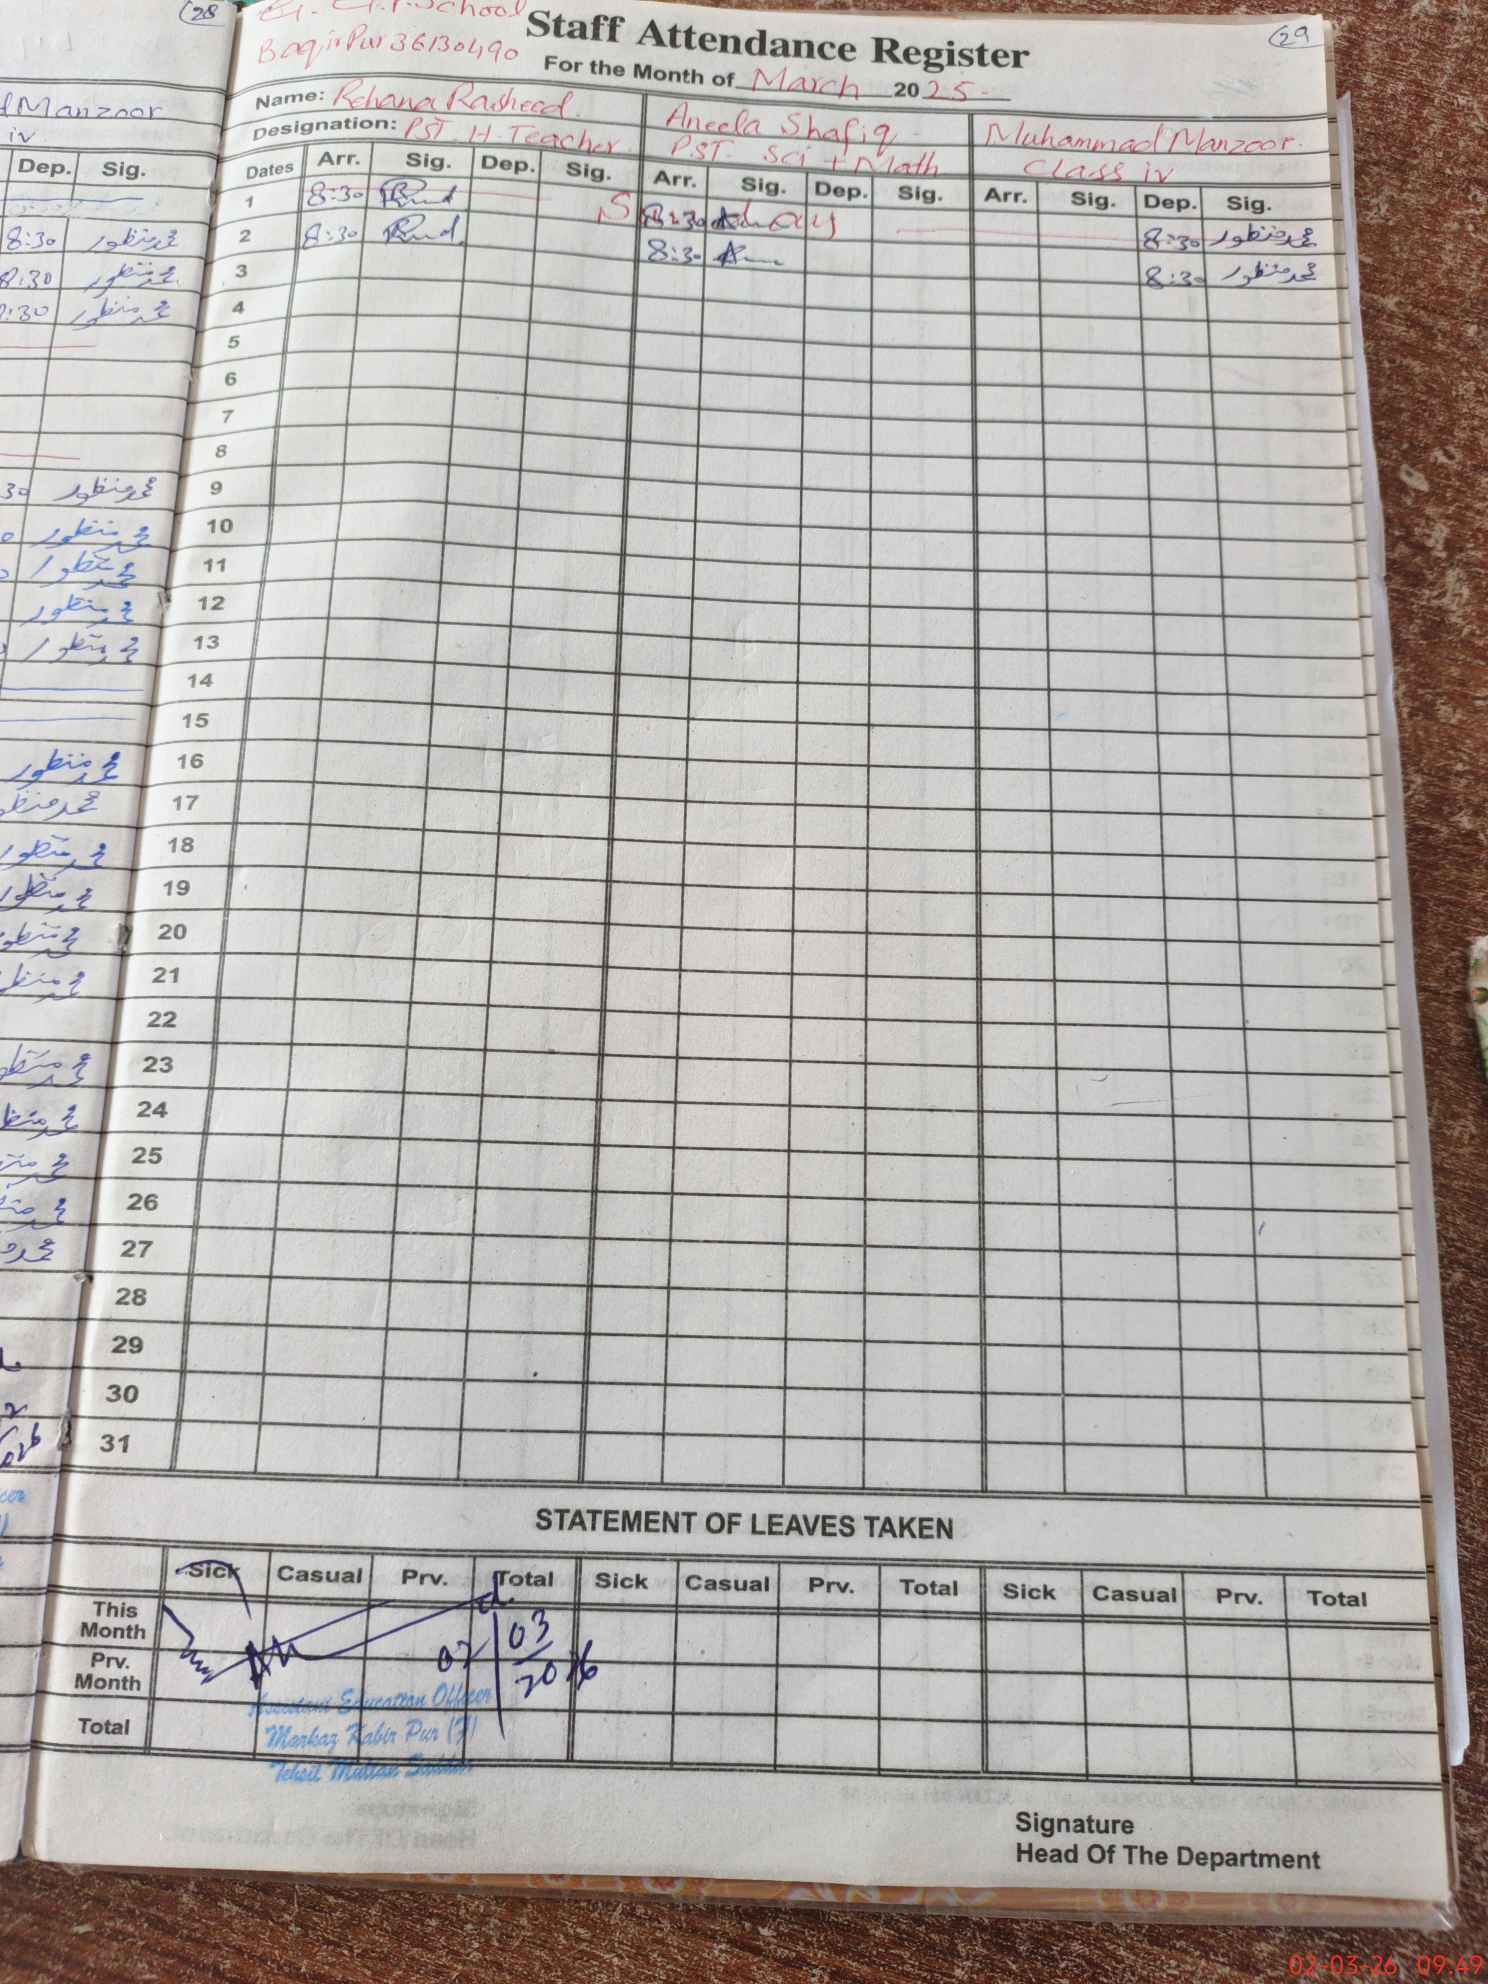 28
29
G. G.P. School
BaqirPur 36130490
Staff Attendance Register
For the Month of March 2025
Name: Rehana Rasheed
Aneela Shafiq
Muhammad Manzoor
Designation: PST H. Teacher
PST. Sci + Math
Class iv
Dates Arr. Sig. Dep. Sig. Arr. Sig. Dep. Sig. Arr. Sig. Dep. Sig.
1 8:30
2 8:30 8:30 8:30 محمد منظور
3 8:30 8:30 محمد منظور
4
5
6
7
8
9
10
11
12
13
14
15
16
17
18
19
20
21
22
23
24
25
26
27
28
29
30
31
Manzoor
iv
Dep. Sig.
8:30 محمد منظور
8:30 محمد منظور
:30 محمد منظور
30 محمد منظور
محمد منظور
محمد منظور
محمد منظور
محمد منظور
محمد منظور
STATEMENT OF LEAVES TAKEN
Sick Casual Prv. Total Sick Casual Prv. Total Sick Casual Prv. Total
This Month
Prv. Month
Total
02/03/2026
Assistant Education Officer
Markaz Kabir Pur (F)
Tehsil Multan Saddar
Signature
Head Of The Department
02-03-26 09:49